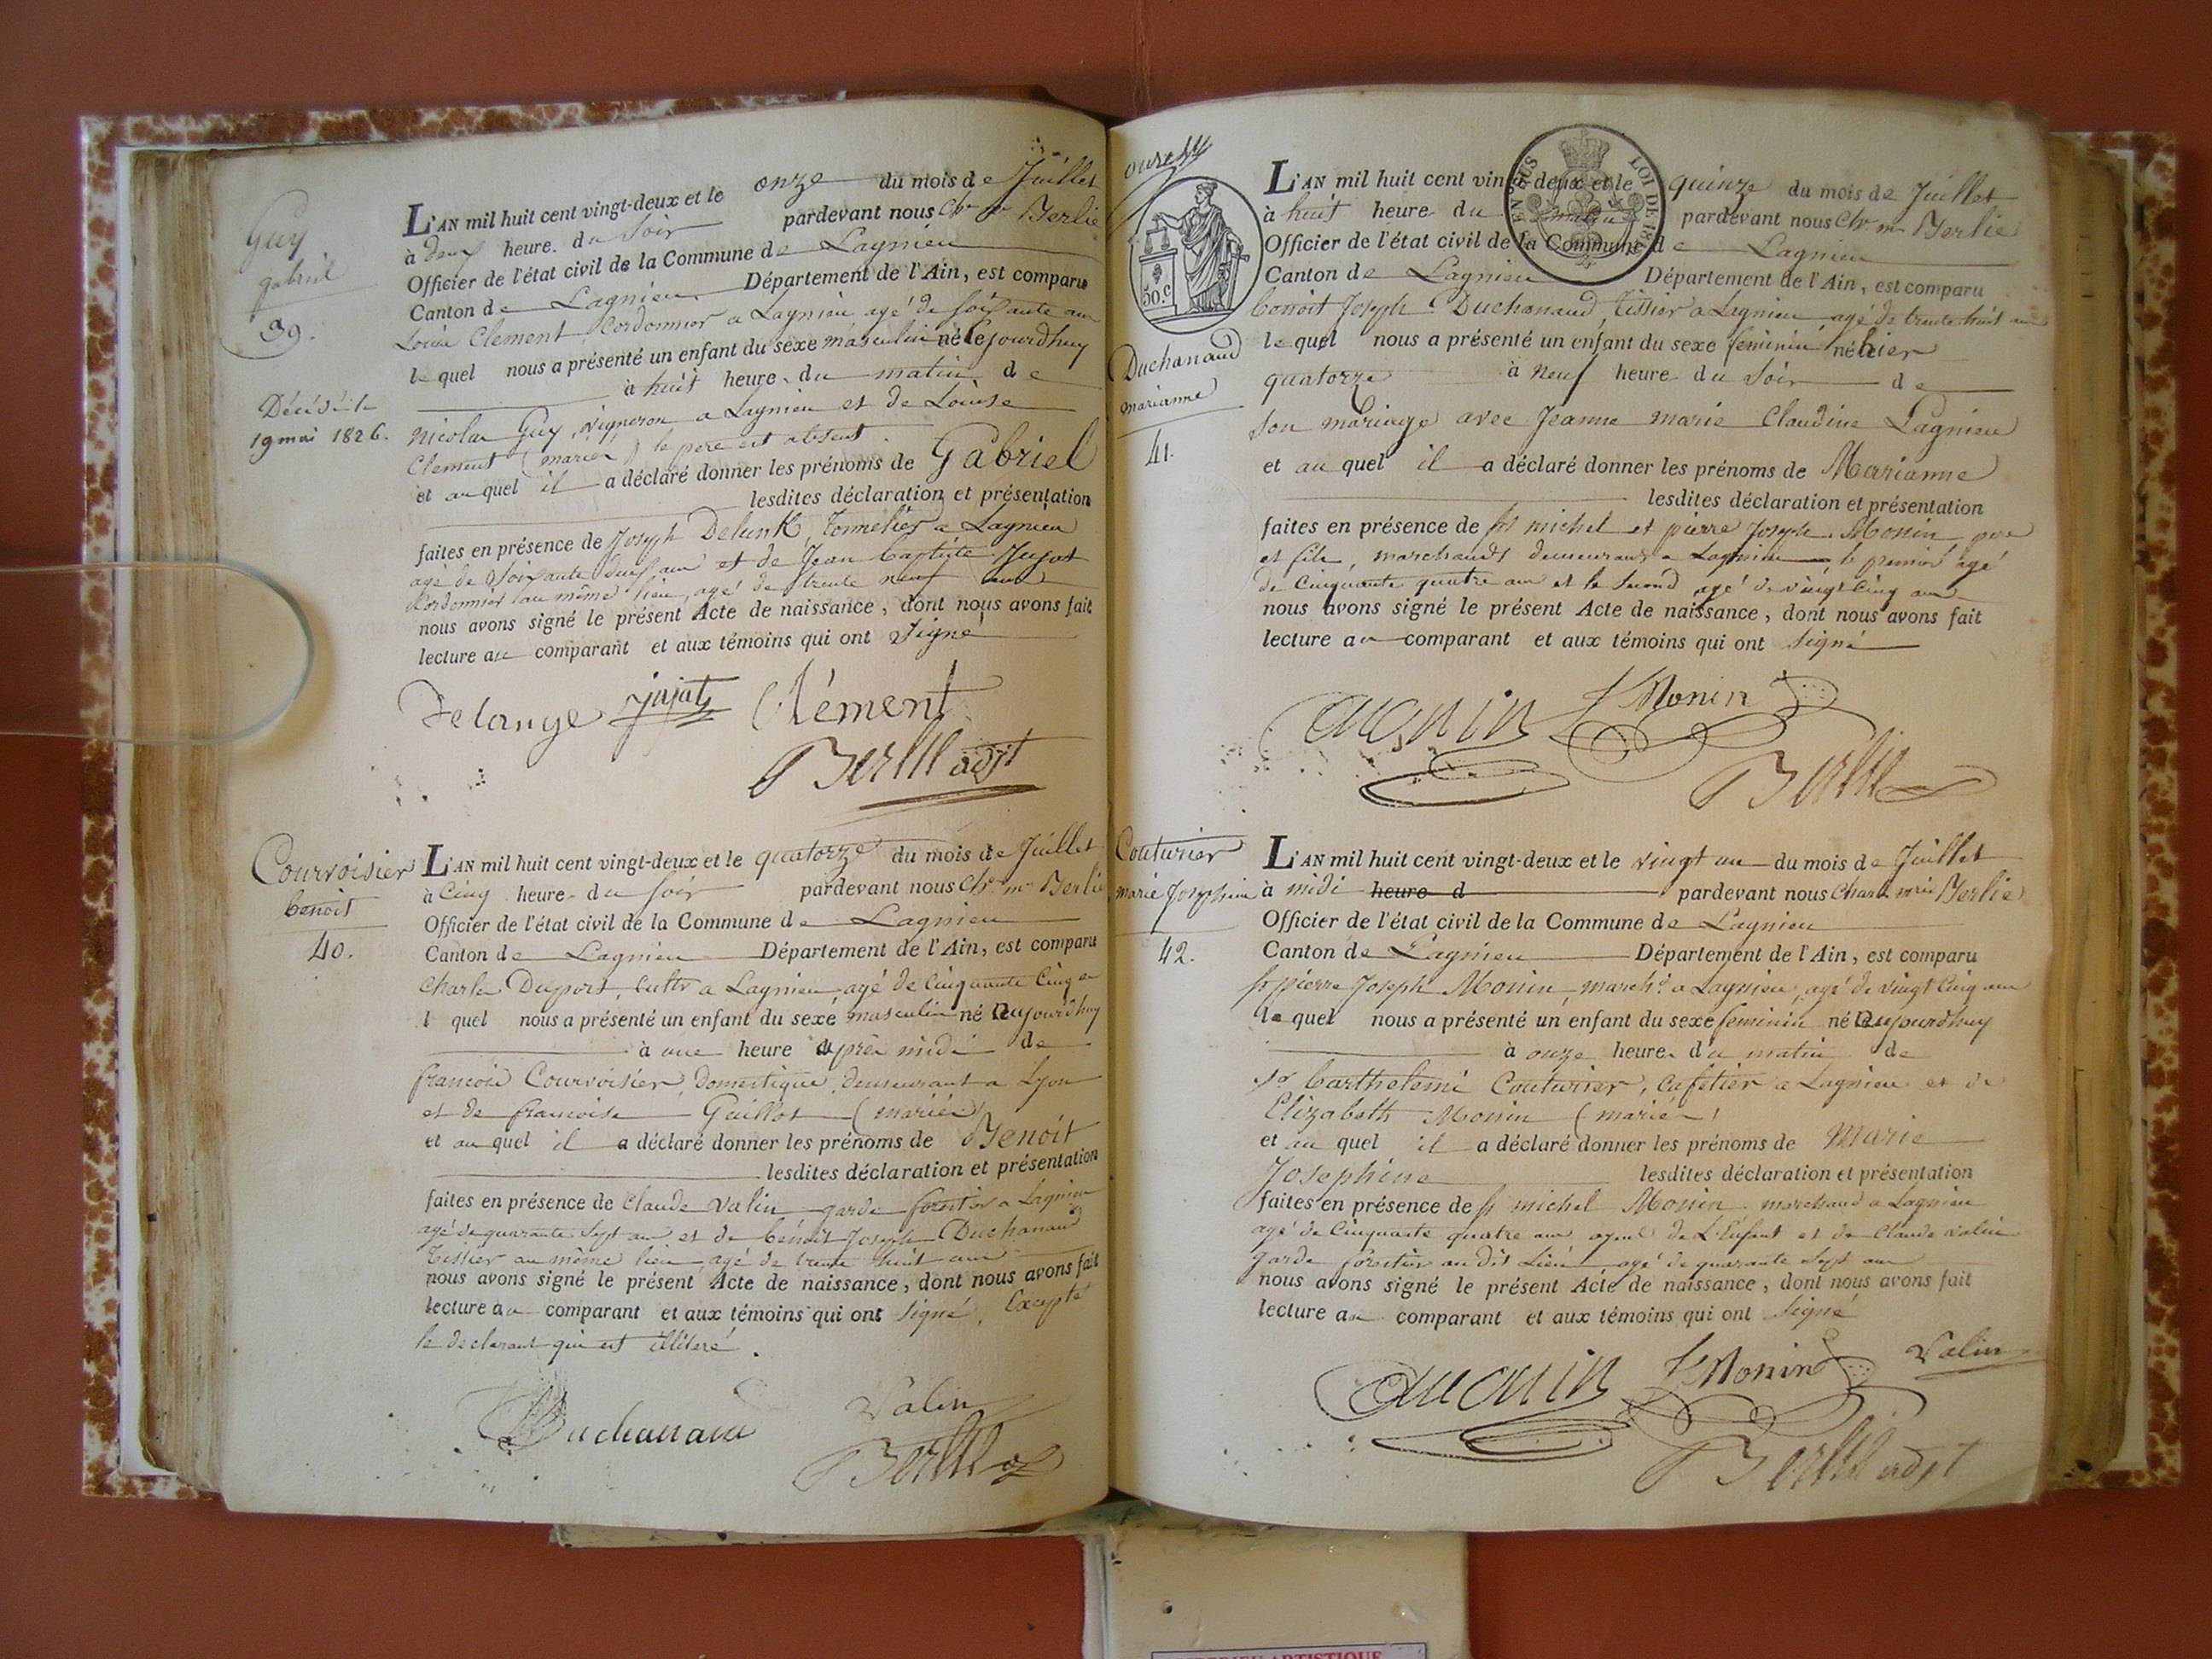 Guy
gabriel
39.
Décédé le
19 mai 1826.
L'AN mil huit cent vingt-deux et le onze du mois de Juillet
à deux heure. du soir pardevant nous Ch. Berlie
Officier de l'état civil de la Commune de Lagnieu
Canton de Lagnieu Département de l'Ain, est comparu
Louis Clement, Cordonnier a Lagnieu agé de soixante ans
le quel nous a présenté un enfant du sexe masculin né cejourdhuy
à huit heure du matin de
Nicolas Guy, vigneron a Lagnieu et de Louise
Clement (mariés) le pere est absent.
et au quel il a déclaré donner les prénoms de Gabriel
lesdites déclaration et présentation
faites en présence de Joseph Tonnelier a Lagnieu
agé de soixante deux ans et de Jean baptiste Jujat
Cordonnier au même lieu, agé de trente neuf ans
nous avons signé le présent Acte de naissance, dont nous avons fait
lecture au comparant et aux témoins qui ont signé
Delange jujat Clément
Berlie adjt
Courvoisier
benoit
40.
L'AN mil huit cent vingt-deux et le quatorze du mois de Juillet
à Cinq heure du soir pardevant nous Ch. m. Berlie
Officier de l'état civil de la Commune de Lagnieu
Canton de Lagnieu Département de l'Ain, est comparu
Charles Duport, cultr a Lagnieu, agé de Cinquante Cinq an
l quel nous a présenté un enfant du sexe masculin né aujourdhuy
à une heure après midi de
francois Courvoisier, domestique, demeurant a Lyon
et de francoise Guillot (mariés)
et au quel il a déclaré donner les prénoms de Benoit
lesdites déclaration et présentation
faites en présence de Claude Valin garde forestier a Lagnieu
agé de quarante sept ans et de bénoit Joseph Duchanaud
Tissier au même lieu agé de trente huit ans
nous avons signé le présent Acte de naissance, dont nous avons fait
lecture au comparant et aux témoins qui ont signé, Excepté
le declarant qui est illiteré.
Duchanaud Valin
Berlie
50.c
EN SUS LOI DE
Duchanaud
marianne
41.
L'AN mil huit cent vingt-deux et le quinze du mois de Juillet
à huit heure du matin pardevant nous Ch. m. Berlie
Officier de l'état civil de la Commune de Lagnieu
Canton de Lagnieu Département de l'Ain, est comparu
benoit Joseph Duchanaud, tissier a Lagnieu agé de trente huit ans
le quel nous a présenté un enfant du sexe feminin né hier
quatorze à neuf heure du soir de
son mariage avec Jeanne marie Claudine Lagnieu
et au quel il a déclaré donner les prénoms de Marianne
lesdites déclaration et présentation
faites en présence de sr michel et pierre Joseph Monin pere
et fils, marchands demeurans a Lagnieu le premier agé
de Cinquante quatre ans et le second agé de vingt Cinq ans
nous avons signé le présent Acte de naissance, dont nous avons fait
lecture au comparant et aux témoins qui ont signé
Monin
Berlie
Couturier
marie Josephine
42.
L'AN mil huit cent vingt-deux et le vingt un du mois de Juillet
à midi heure d pardevant nous Charl. m.rie Berlie
Officier de l'état civil de la Commune de Lagnieu
Canton de Lagnieu Département de l'Ain, est comparu
sr pierre Joseph Monin, march.d a Lagnieu, agé de vingt Cinq ans
le quel nous a présenté un enfant du sexe feminin né aujourdhuy
à onze heure du matin de
sr barthelemi Couturier, Cafetier a Lagnieu et de
Elizabeth Monin (mariés)
et au quel il a déclaré donner les prénoms de Marie
Josephine lesdites déclaration et présentation
faites en présence de sr michel Monin marchand a Lagnieu
agé de Cinquante quatre ans ayeul de L'Enfant et de Claude valin
garde forestier au dit Lieu agé de quarante sept ans
nous avons signé le présent Acte de naissance, dont nous avons fait
lecture au comparant et aux témoins qui ont signé
Monin Valin
Berlie adjt
ARTISTIQUE